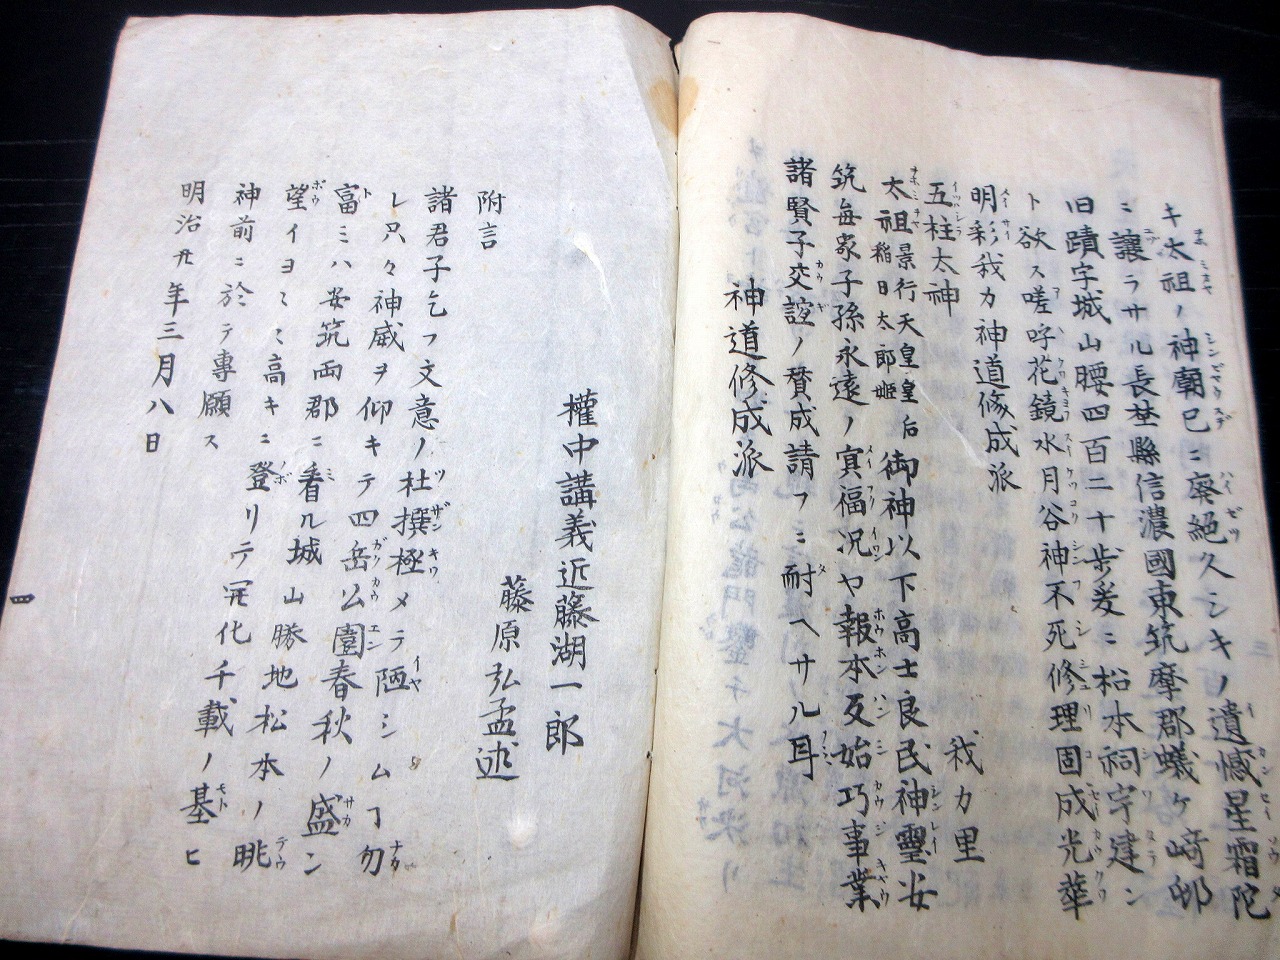 キ太祖ノ神朝巳ニ廃絕久シキノ遺憾星霜陀
ニ讓ラサル長埜縣信濃國東筑摩郡蟻ケ﨑邨
旧蹟字城山腰四百二十歩爰ニ松本祠宇建ン
ト欲ス嗟呼花鏡水月谷神不死修理固成光華
明彩我カ神道修成派
我カ里
五柱太神
太祖景行天皇皇后稲日太郎姫御神以下高士良民神靈安
筑毎家子孫永遠ノ冥福况ヤ報本反始巧事業
諸賢子交誼ノ賛成請フニ耐ヘサル耳
神道修成派
權中講義近藤湖一郎
藤原弘孟述
附言
諸君子乞フ文意ノ杜撰極メテ陋シムヿ勿
レ只々神威ヲ仰キテ四岳公園春秋ノ盛ン
富ミハ安筑両郡ニ看ル城山勝地松本ノ眺
望イヨミミ高キニ登リテ開化千載ノ基ヒ
神前ニ於テ專願ス
明治廾年三月八日
四